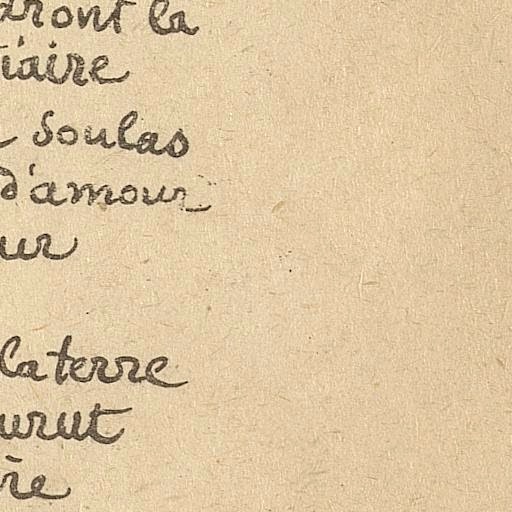 ront la
iaire
soulas
d'amour
ur
la terre
urut
re